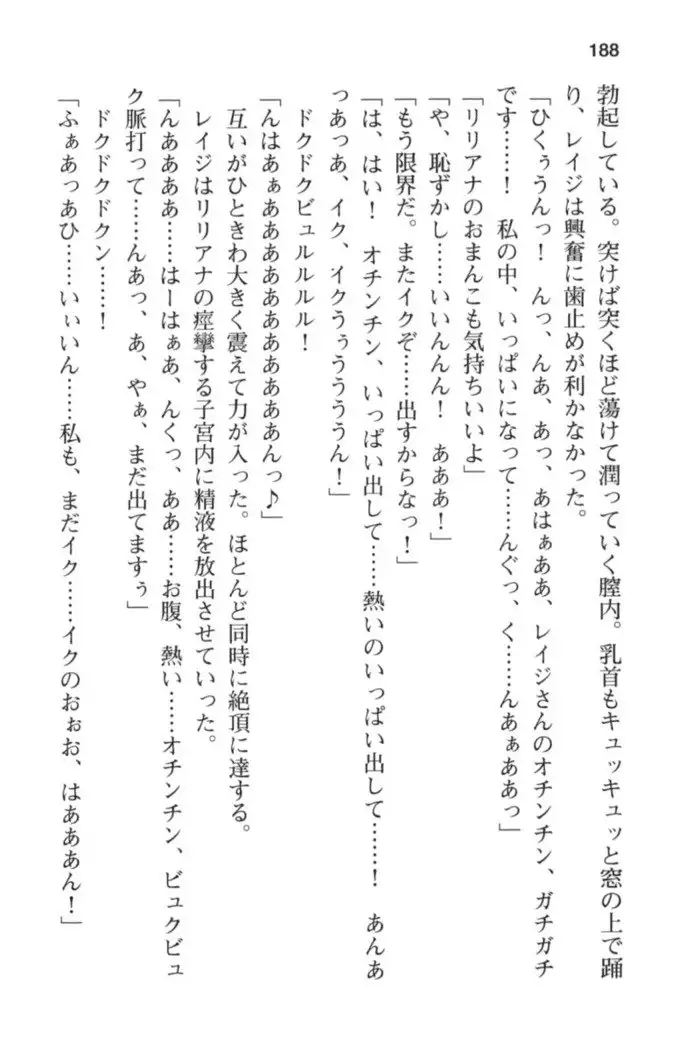 188
勃起している。突けば突くほど蕩けて潤っていく膣内。乳首もキュッキュッと窓の上で踊
り、レイジは興奮に歯止めが利かなかった。
「ひくぅうんっ！　んっ、んあ、あっ、あはぁああ、レイジさんのオチンチン、ガチガチ
です……！　私の中、いっぱいになって……んぐっ、く……んあぁああっ」
「リリアナのおまんこも気持ちいいよ」
「や、恥ずかし……いいんんん！　あああ！」
「もう限界だ。またイクぞ……出すからなっ！」
「は、はい！　オチンチン、いっぱい出して……熱いのいっぱい出して……！　あんあ
っあっあ、イク、イクうぅうううん！」
ドクドクビュルルルル！
「んはあぁああああああああああああんっ♪」
互いがひときわ大きく震えて力が入った。ほとんど同時に絶頂に達する。
レイジはリリアナの痙攣する子宮内に精液を放出させていった。
「んああああ……はーはぁあ、んくっ、ああ……お腹、熱い……オチンチン、ビュクビュ
ク脈打って……んあっ、あ、やぁ、まだ出てますぅ」
ドクドクドクン……！
「ふぁあっあひ……いぃいん……私も、まだイク……イクのおぉお、はあああん！」